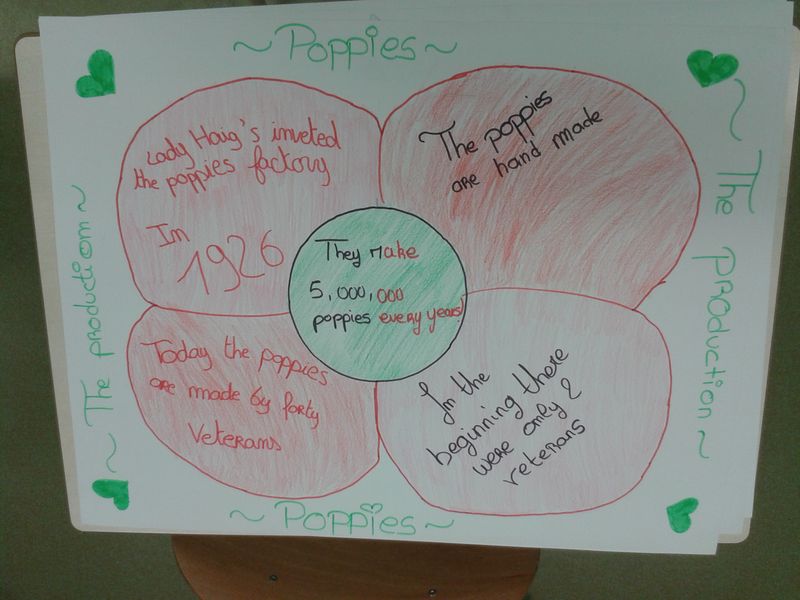 ~ Poppies ~
Lady Haig's inveted
the poppies factory
In
1926
The poppies
are hand made
They make
5,000,000
poppies every years!
Today the poppies
are made by forty
Veterans
In the
beginning there
were only 2
veterans
~ The production ~
~ The production ~
~ Poppies ~